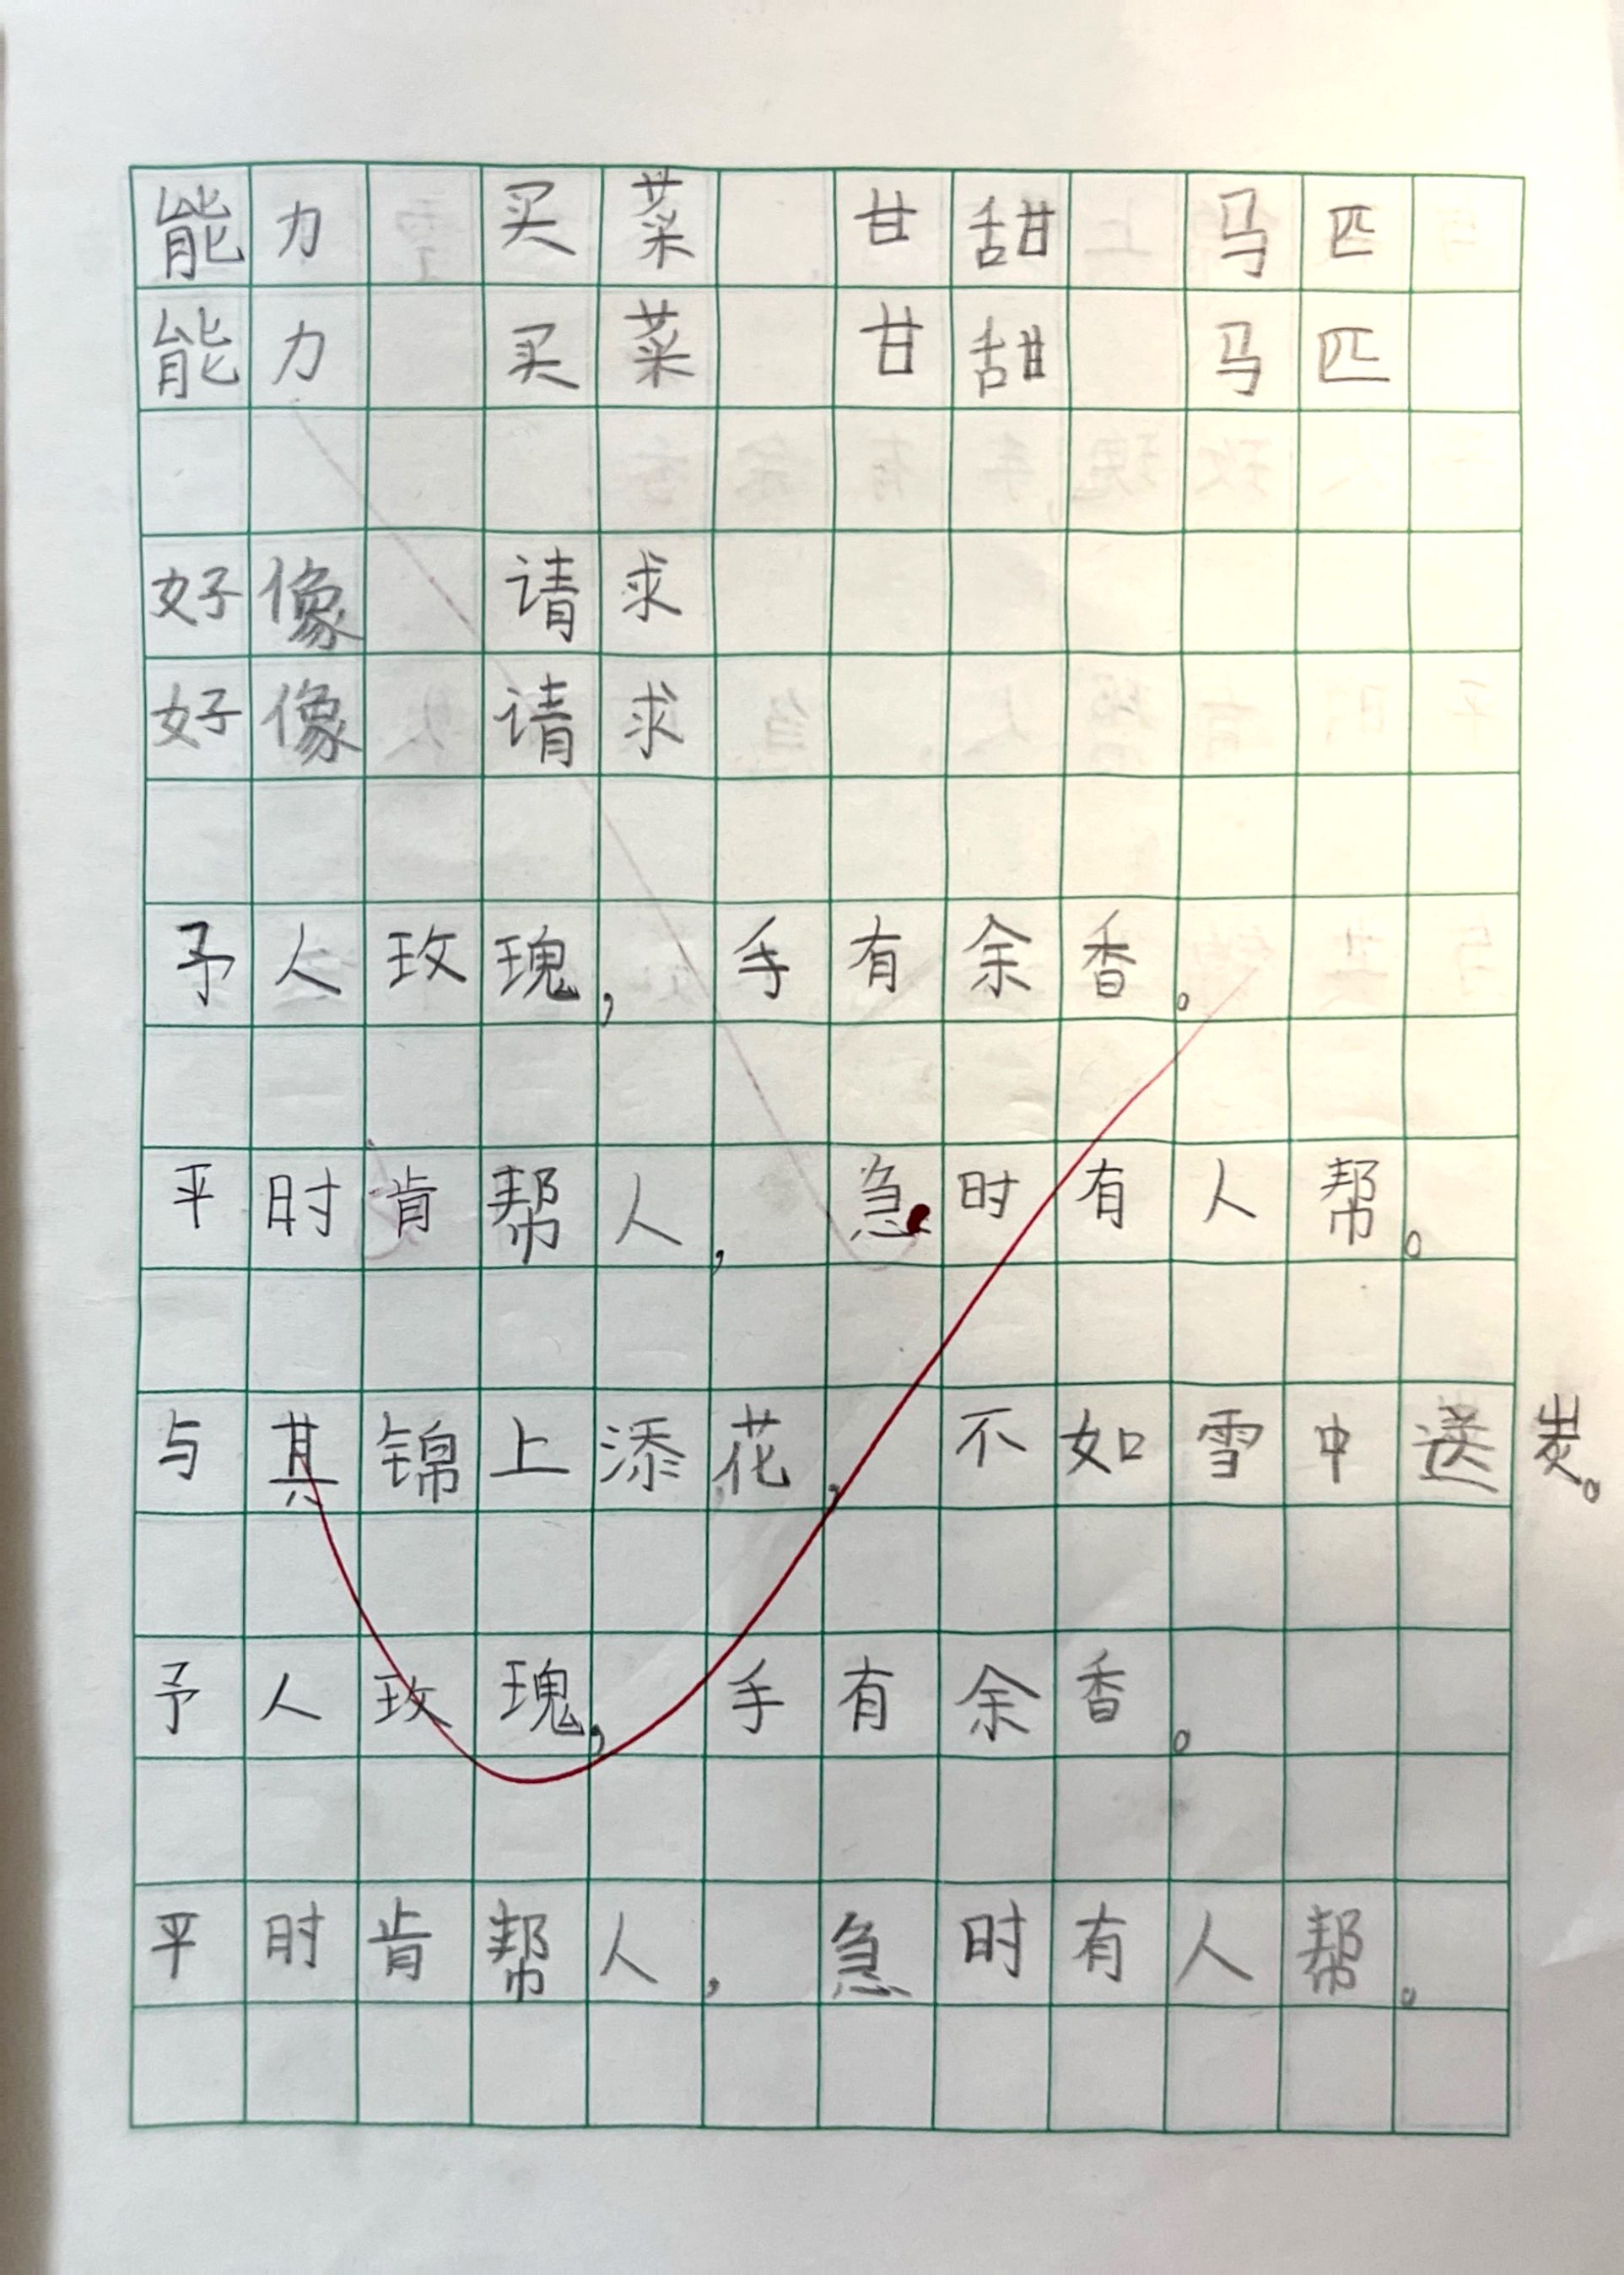 能力 买菜 甘甜 马匹
能力 买菜 甘甜 马匹
好像 请求
好像 请求
予人玫瑰, 手有余香。
平时肯帮人, 急时有人帮。
与其锦上添花, 不如雪中送炭。
予人玫瑰, 手有余香。
平时肯帮人, 急时有人帮。